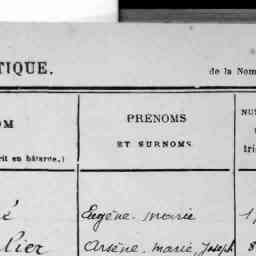 TIQUE. de la Nom
OM PRÉNOMS NU
ET SURNOMS.
rit en bâtarde.) tri
é Eugène. Marie 1
lier Arsène. Marie, Joseph 8